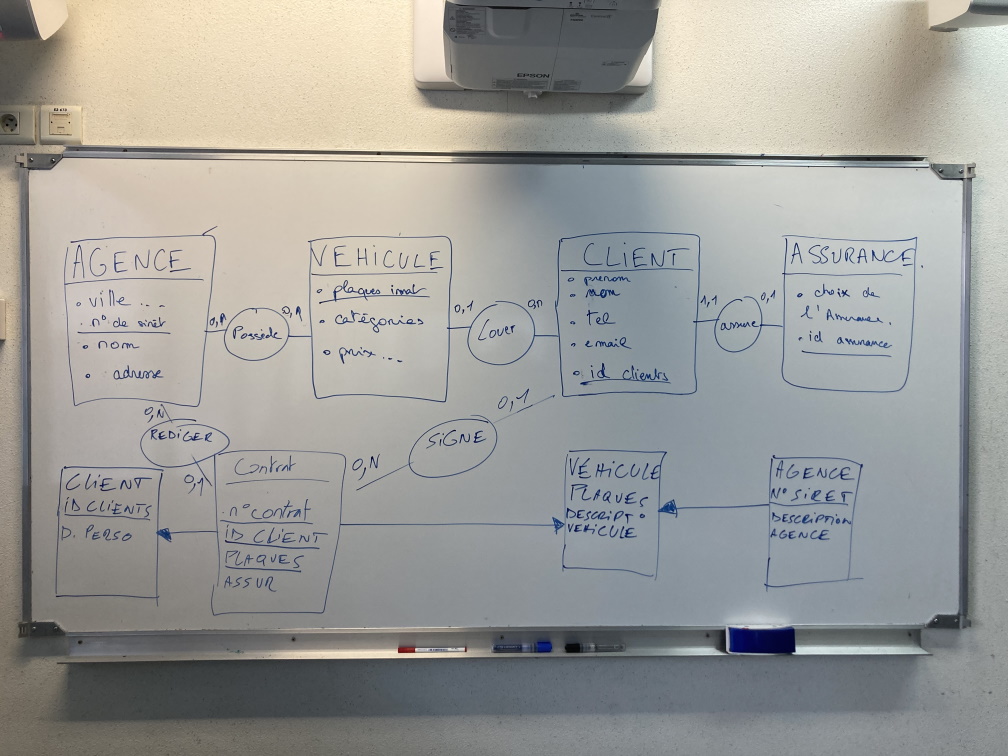 EPSON
AGENCE
• ville ...
• n° de siret
• nom
• adresse
0,N
Possède
0,N
VEHICULE
• plaques imat
• catégories
• prix ...
0,1
Louer
0,n
CLIENT
• prenom
• nom
• tel
• email
• id clients
1,1
assure
0,1
ASSURANCE
• choix de
l'Assurance.
• id assurance
0,N
REDIGER
0,1
0,N
SIGNE
0,1
CLIENT
ID CLIENTS
D. PERSO
Contrat
• n° contrat
ID CLIENT
PLAQUES
ASSUR
VÉHICULE
PLAQUES
DESCRIPT°
VEHICULE
AGENCE
N° SIRET
DESCRIPTION
AGENCE